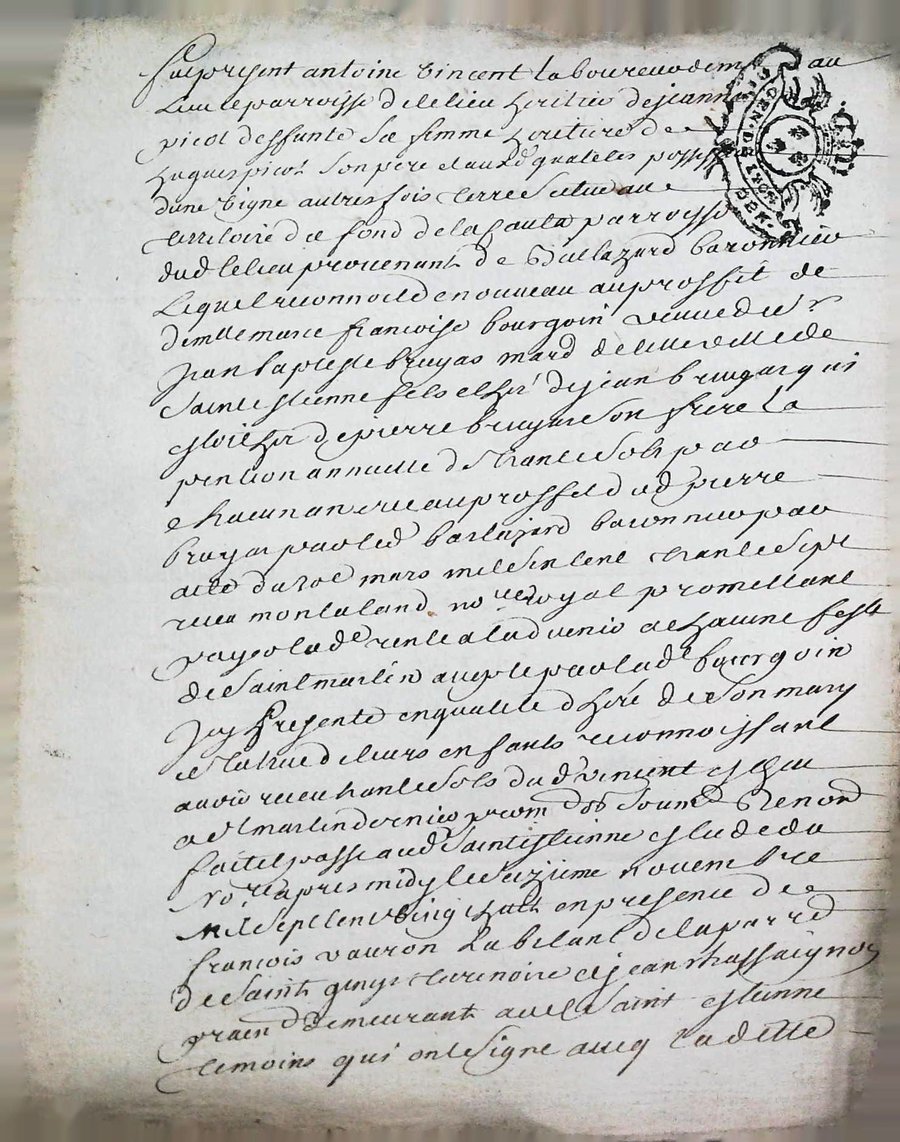 fut present antoine Vincent laboureur dem au
lieu et parroisse de lelieu heritier de jeanne
picot deffunte sa femme heritiere de
hugues picot son pere et aud quateles possess
dune vigne autresfois terre scitue au
territoire de fond de la parroisse
dud lelieu provenant de Ballazard baronnier
Lequel reconnoit de nouveau au proffit de
demlle marie francoise bourgoin veuve de sr
jean baptiste bruyas mard de cette ville de
saint estienne fils et her de jean bruyas qui
estoit her de pierre bruyas son frere la
pention annuelle de trante sols par
chacun an cree au proffit dud pierre
bruyas par led baltazard baronnier par
acte du mars mil six cent trante sept
receu montaland nore royal promettant
payer lade rente a ladvenir a chacune feste
de saint martin accepte par lade bourgoin
icy presente en qualite d here de son mary
et tutrice de leurs enfants reconnoissant
avoir receu trante sols dud vincent escheu
a st martin dernier prom obl soum Renon
fait et passe aud saint estienne estude du
nore apres midy le seizieme novembre
mil sept cent vingt huit en presence de
francois vauron habitant de la parre
de saint genys terrenoire et jean chassaignon
pratn demeurant aud saint estienne
temoins qui ont signe avecq ladette
GEN DE